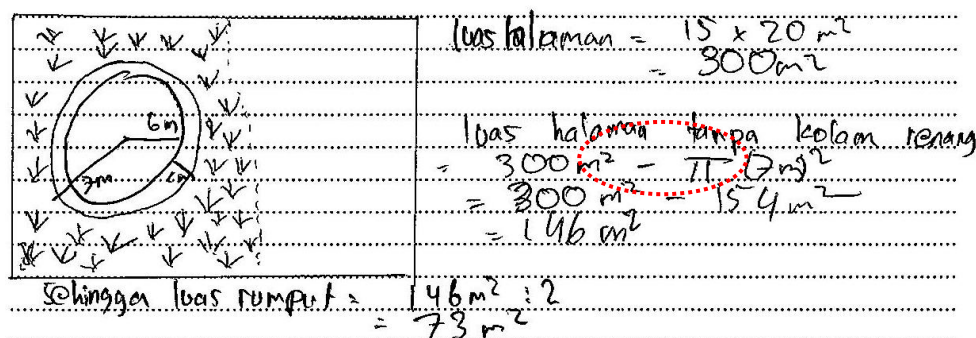 luas halaman = 15 x 20 m²
= 300 m²
6m
7m
luas halaman tanpa kolam renang
= 300 m² - π (7m)²
= 300 m² - 154 m²
= 146 m²
Sehingga luas rumput = 146 m² : 2
= 73 m²